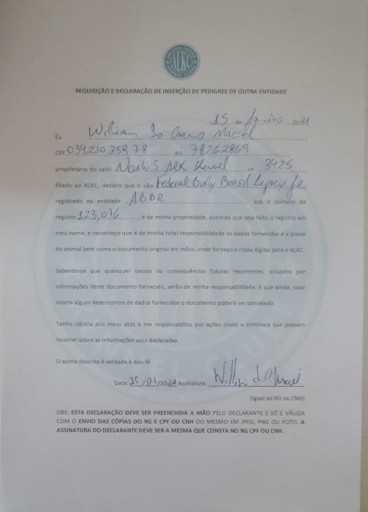 ALKC
REQUISIÇÃO E DECLARAÇÃO DE INSERÇÃO DE PEDIGREE DE OUTRA ENTIDADE
15
Eu William
CPF RG 78262869
proprietário do canil Kennel 3425
filiado ao ALKC, declaro que o cão Federal Bully Brasil Legacy Jr.
registrado na entidade ABBR sob o número de
registro 123,076 é de minha propriedade, autorizo que seja feito o registro em
meu nome, e reconheço que é de minha total responsabilidade os dados fornecidos e a posse
do animal bem como o documento original em mãos, onde forneço a cópia digital para o ALKC.
Sabendo-se que quaisquer causas ou consequências futuras recorrentes, oriundos por
informações deste documento fornecido, serão de minha responsabilidade. E que ainda, caso
ocorra algum desencontro de dados fornecidos o documento poderá ser cancelado.
Tenho ciência dos meus atos e me responsabilizo por ações cíveis e criminais que possam
recorrer sobre as informações aqui declaradas.
O acima descrito é verdade e dou fé
Data: 15/01/ Assinatura:
(Igual ao RG ou CNH)
OBS: ESTA DECLARAÇÃO DEVE SER PREENCHIDA A MÃO PELO DECLARANTE E SÓ É VÁLIDA
COM O ENVIO DAS CÓPIAS DO RG E CPF OU CNH DO MESMO EM JPEG, PNG OU FOTO. A
ASSINATURA DO DECLARANTE DEVE SER A MESMA QUE CONSTA NO RG CPF OU CNH.